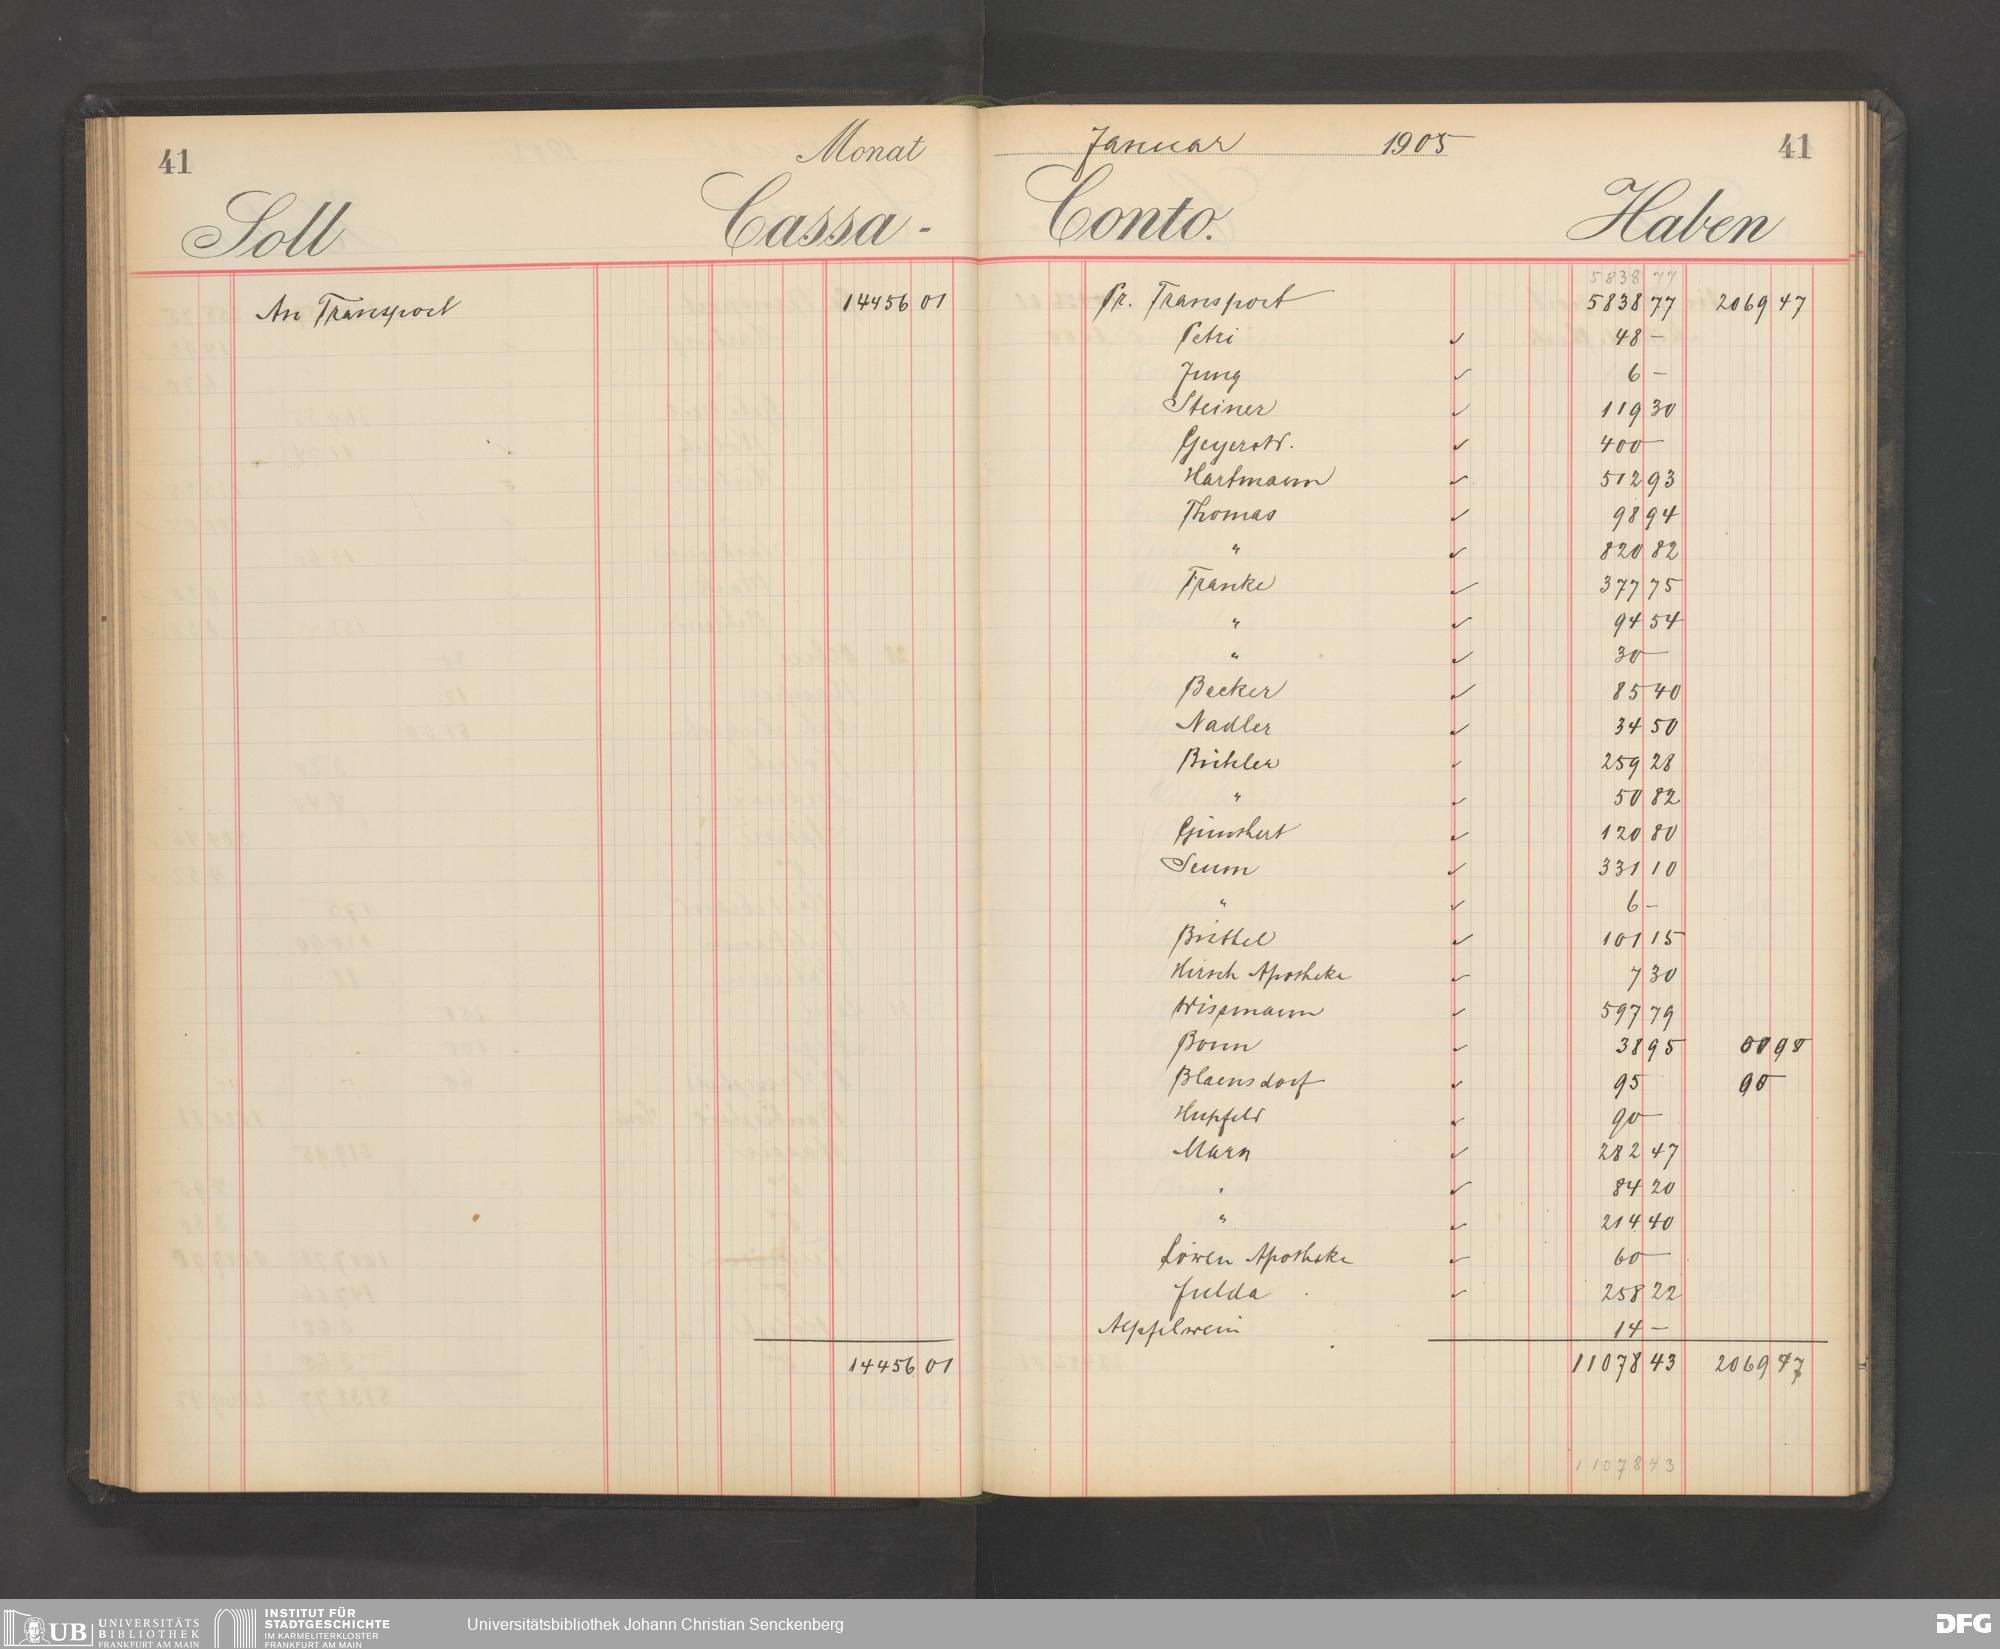 41
Monat
Soll
Cassa -
An Transport 14456 01
14456 01
Januar 1905
41
Conto.
Haben
5838 77
Pr. Transport 5838 77 2069 47
Petri ✓ 48 –
Jung ✓ 6 –
Steiner ✓ 119 30
✓ 400 –
Hartmann ✓ 512 93
Thomas ✓ 98 94
" ✓ 820 82
Franke ✓ 377 75
" ✓ 94 54
" ✓ 30 –
Becker ✓ 85 40
Nadler ✓ 34 50
Büchler ✓ 259 28
" ✓ 50 82
✓ 120 80
Seum ✓ 331 10
" ✓ 6 –
✓ 101 15
Hirsch Apotheke ✓ 7 30
Wismann ✓ 597 79
Bonn ✓ 38 95
Blaensdorf ✓ 95
Hupfeld ✓ 90 –
Marx ✓ 282 47
" ✓ 84 20
" ✓ 214 40
Löwen Apotheke ✓ 60 –
Fulda ✓ 258 22
Aepfelwein 14 –
11078 43 2069 47
11078 43
UB UNIVERSITÄTS
BIBLIOTHEK
FRANKFURT AM MAIN
INSTITUT FÜR
STADTGESCHICHTE
IM KARMELITERKLOSTER
FRANKFURT AM MAIN
Universitätsbibliothek Johann Christian Senckenberg
DFG